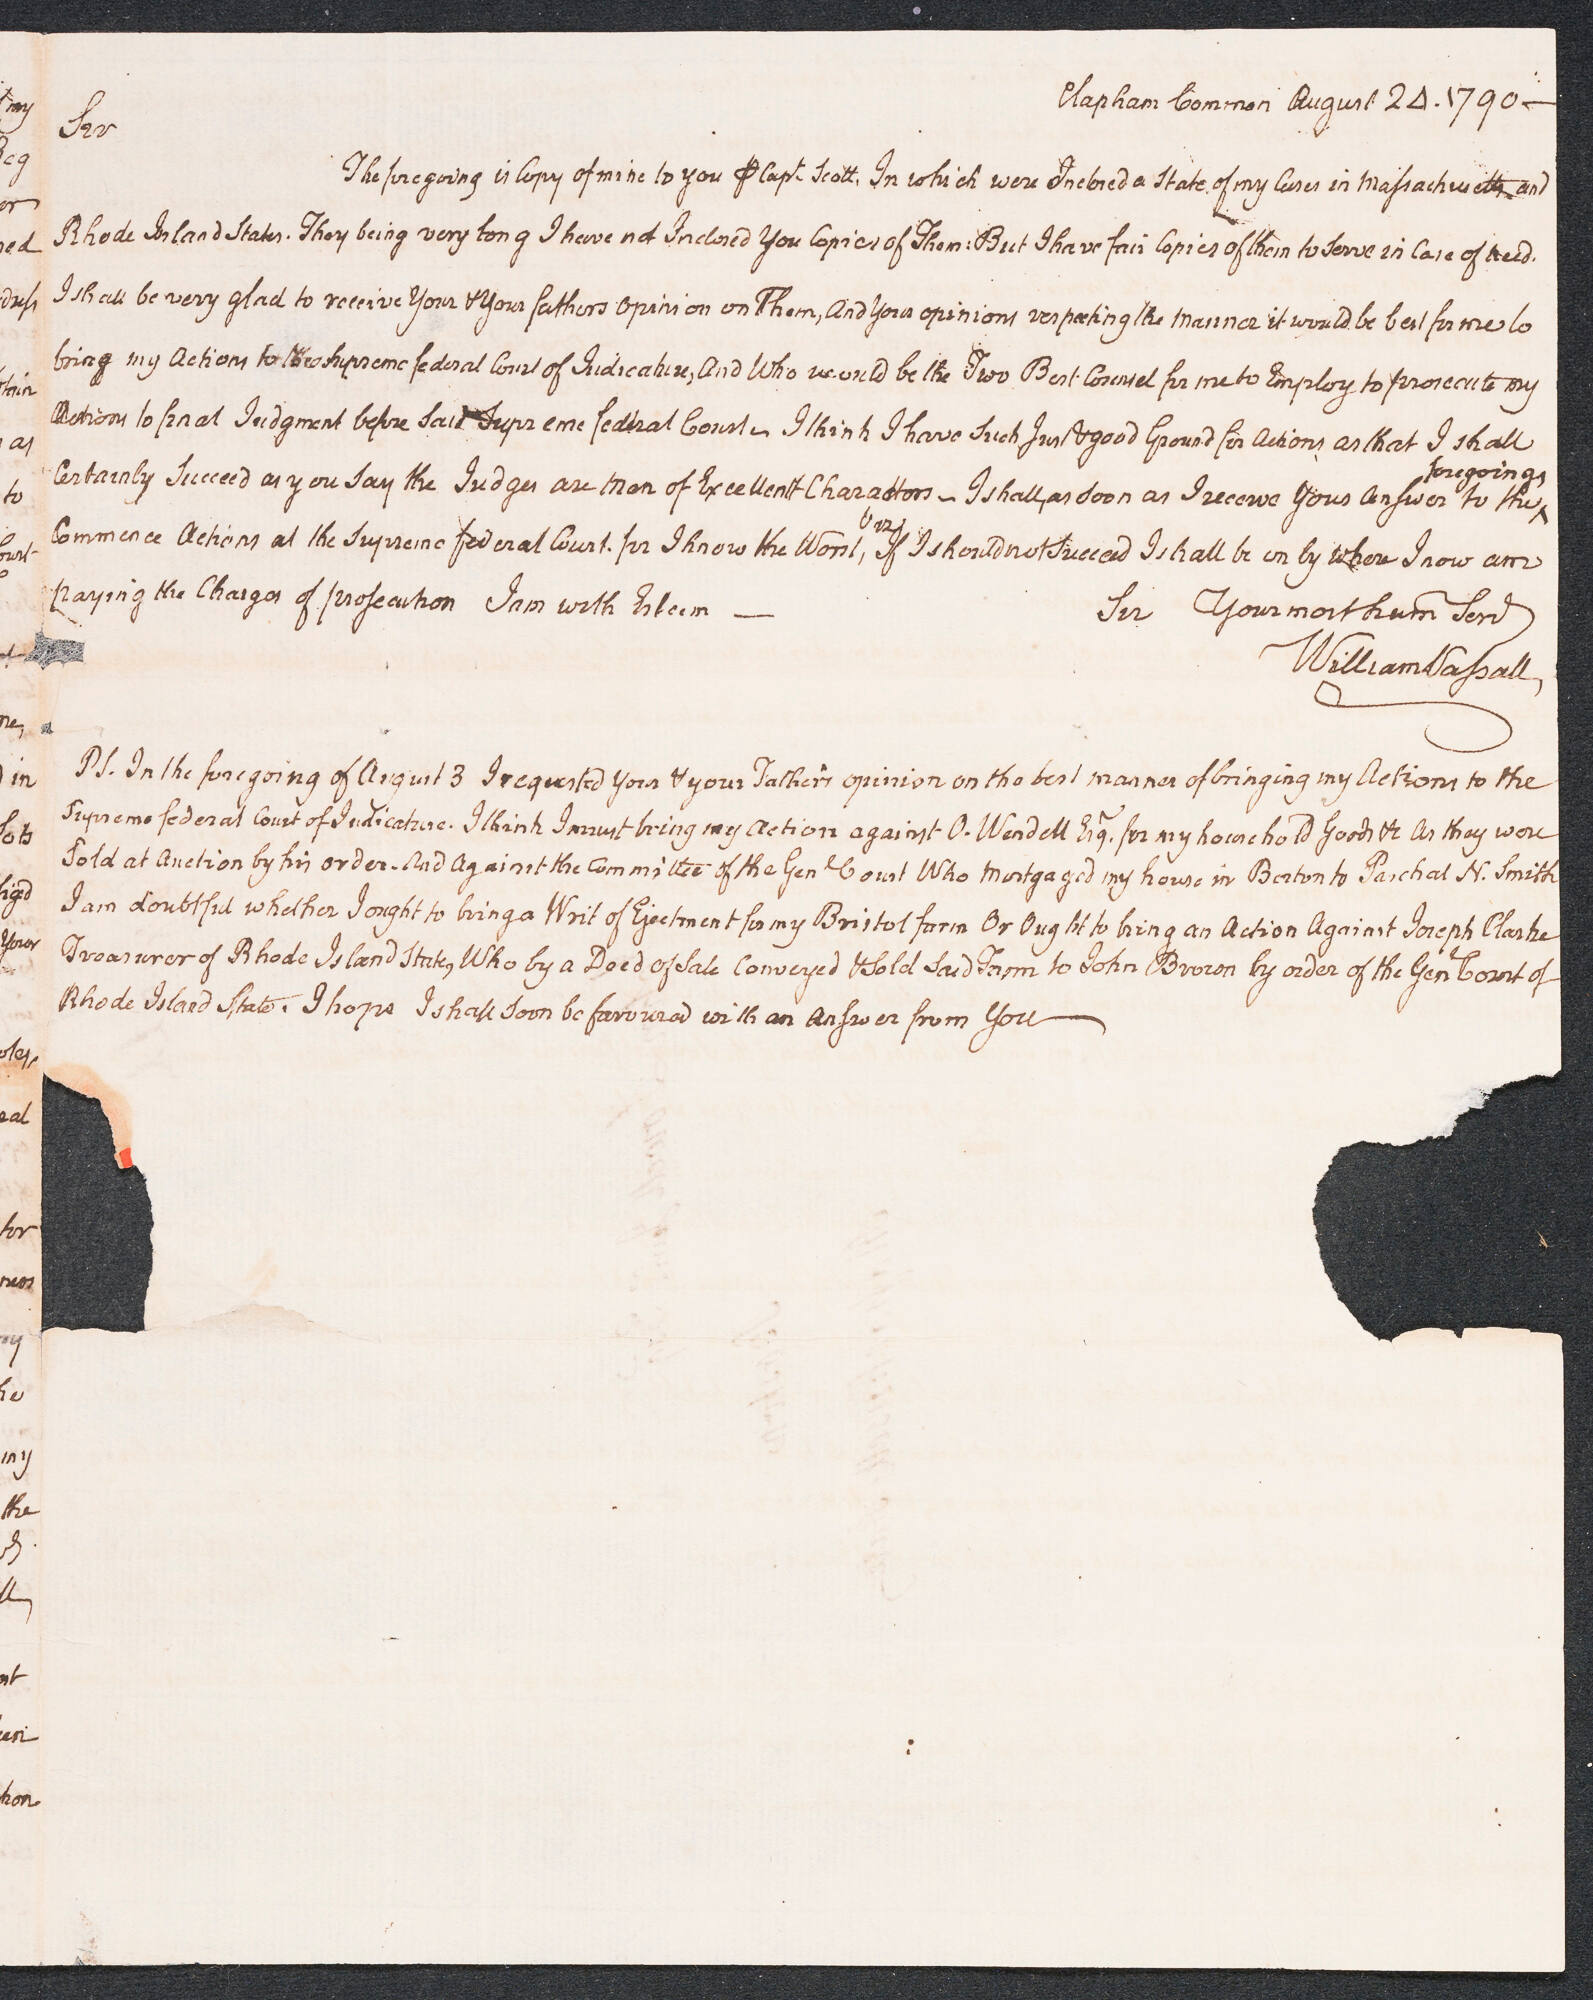 Clapham Common August 24. 1790 —
Sir
The foregoing is Copy of mine to you ⅌ Capt. Scott. In which were Inclosed a State of my Cases in Massachusetts and
Rhode Island States. They being very long I have not Inclosed You Copies of Them: But I have fair Copies of them to Serve in Case of need.
I shall be very glad to receive Your & Your fathers opinion on Them, And Your opinions respecting the manner it would be best for me to
bring my Actions to the Supreme federal Court of Judicature, And Who would be the Two Best Counsel for me to Employ to prosecute my
Actions to final Judgment before Said Supreme federal Court – I think I have Such Just & good Ground for Actions as that I shall
Certainly Succeed as you Say the Judges are men of Excellent Charactors – I shall, as soon as I receive Your Answer to the foregoings
Commence Actions at the Supreme federal Court. for I know the Worst, viz If I should not Succeed I shall be on by where I now am
paying the Charges of prosecution I am with Esteem —
Sir Your most hum Serv
William Vassall,
PS. In the foregoing of August 3 I requested your & your Father's opinion on the best manner of bringing my Actions to the
Supreme federal Court of Judicature. I think I must bring my Action against O. Wendell Esq. for my household Goods &c As they were
Sold at Auction by his order. And Against the Committee of the Genl Court Who Mortgaged my house in Boston to Paschal N. Smith
I am doubtful whether I ought to bring a Writ of Ejectment for my Bristol farm Or Ought to bring an Action Against Joseph Clarke
Treasurer of Rhode Island State, Who by a Deed of Sale Conveyed & Sold Said Farm to John Brown by order of the Genl Court of
Rhode Island State. I hope I shall Soon be favoured with an Answer from You —